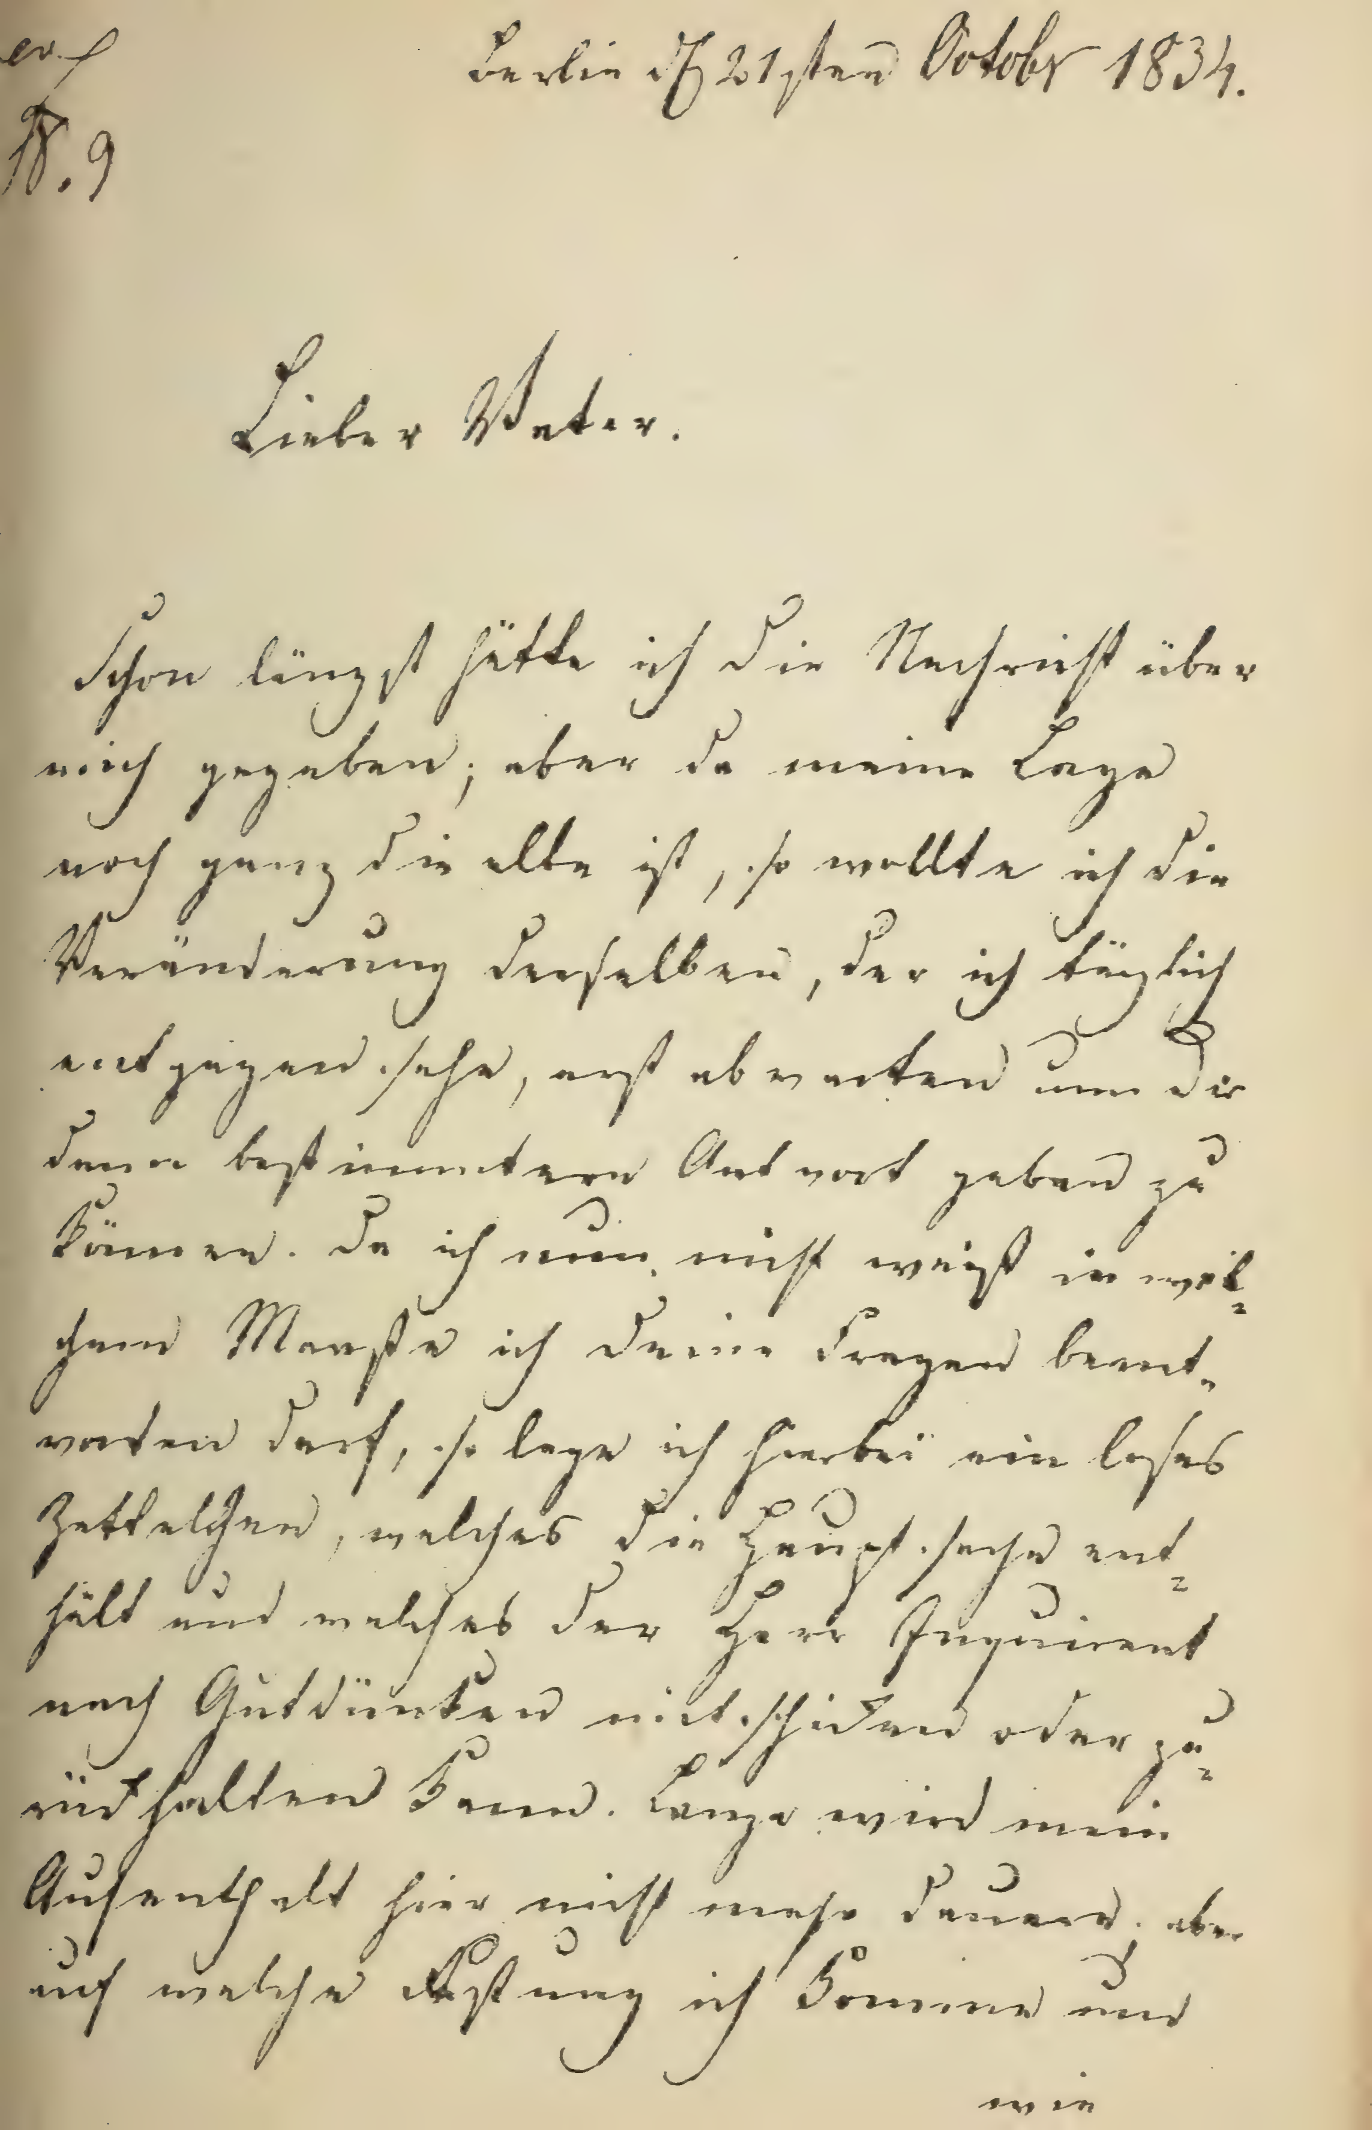 Berlin d 21sten Octobr 1834.
Lieber Vater.
Schon längst hätte ich die Nachricht über
mich gegeben; aber da meine Lage
noch ganz die alte ist, so wollte ich die
Veränderung derselben, der ich täglich
entgegen sehe, erst abwarten um Dir
dann bestimmtere Antwort geben zu
können. Da ich nun nicht weiß in wel-
chem Maaße ich deine Fragen beant-
worten darf, so lege ich hierbei ein loses
Zettelchen, welches die Haupt sache ent-
hält und welches der Herr Inquirent
nach Gutdünken mitschicken oder zu-
rückhalten kann. Lange wird mein
Aufenthalt hier nicht mehr dauern; aber
auf welche Festung ich komme und
wie